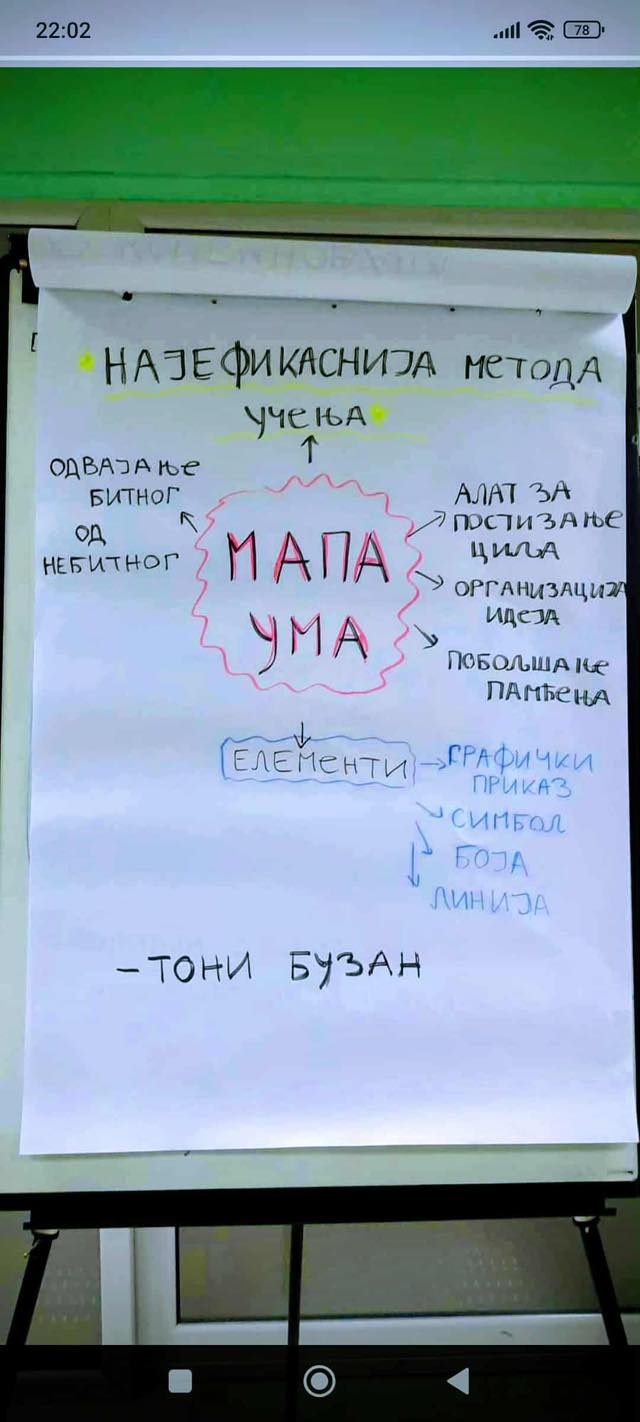 22:02
78
НАЈЕФИКАСНИЈА МЕТОДА
УЧЕЊА
ОДВАЈАЊЕ
БИТНОГ
ОД
НЕБИТНОГ
МАПА
УМА
АЛАТ ЗА
ПОСТИЗАЊЕ
ЦИЉА
ОРГАНИЗАЦИЈА
ИДЕЈА
ПОБОЉШАЊЕ
ПАМЋЕЊА
ЕЛЕМЕНТИ
ГРАФИЧКИ
ПРИКАЗ
СИМБОЛ
БОЈА
ЛИНИЈА
- ТОНИ БУЗАН